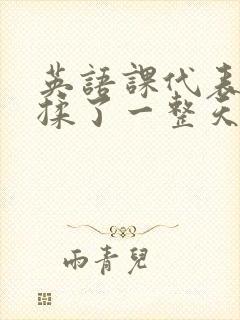 英語課代表
揉了一整天
雨青兒